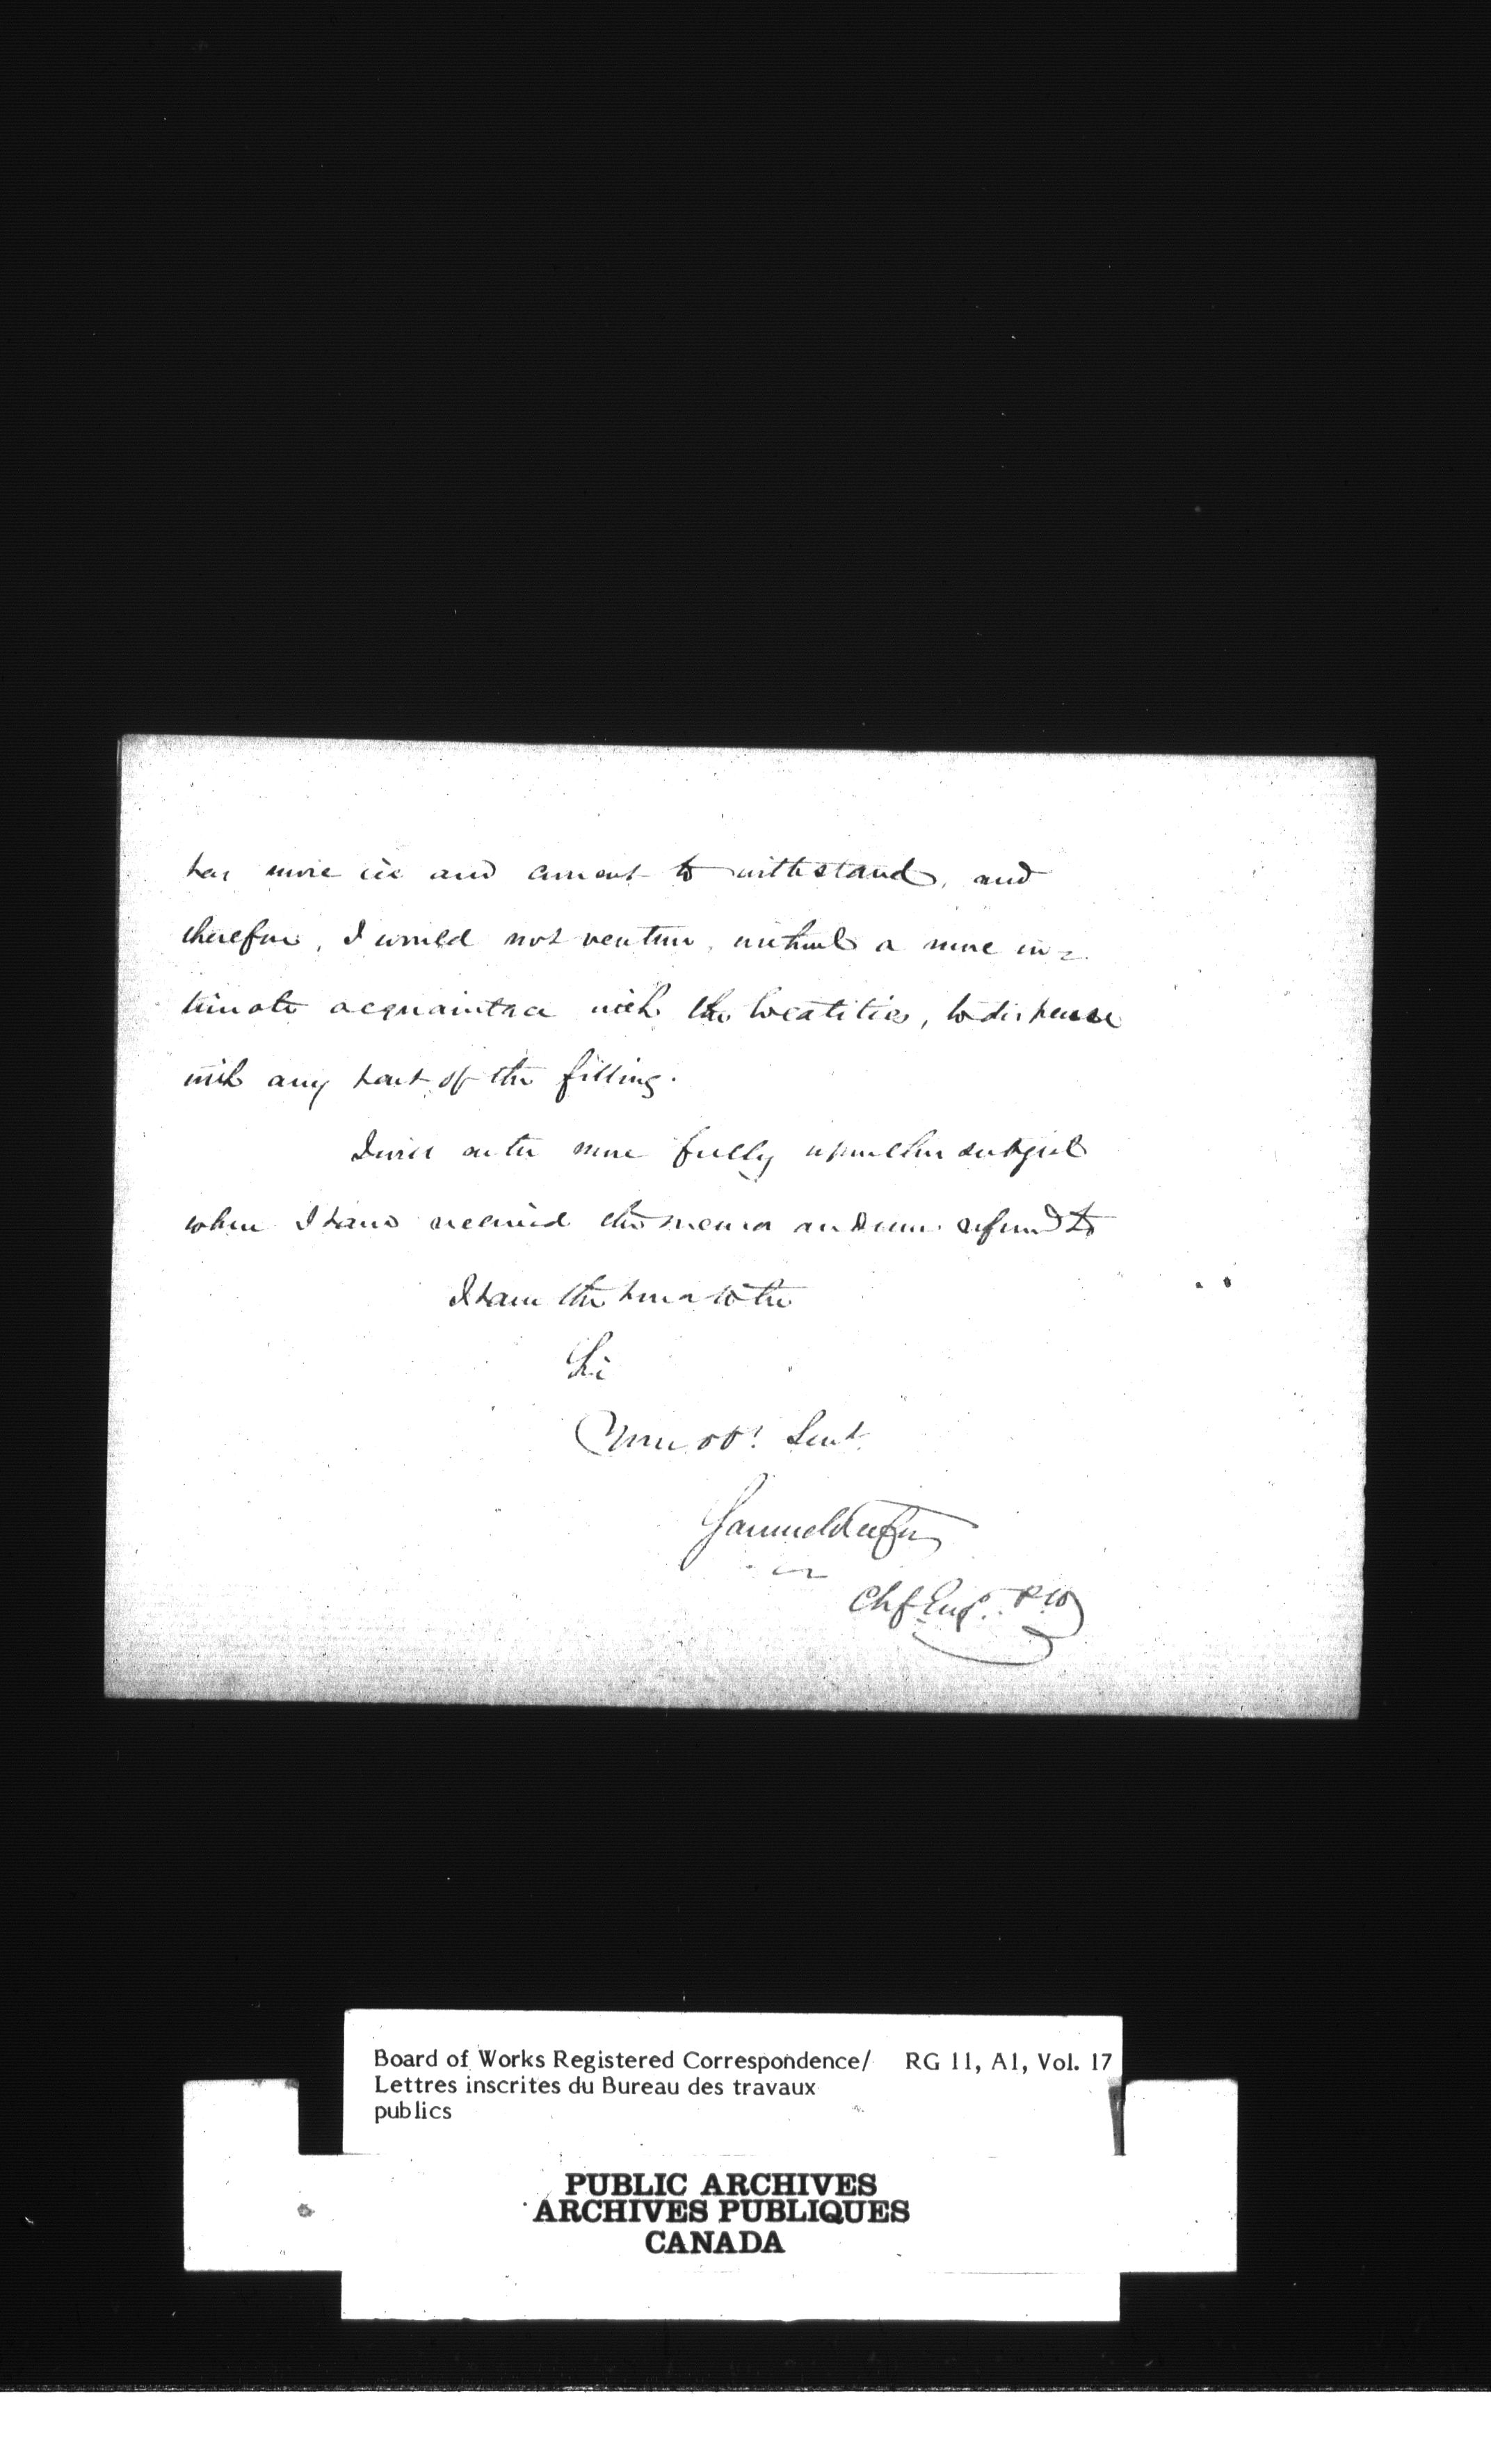 has more ice and current to withstand, and
therefore, I would not venture, without a more in=
timate acquaintance with the localities, to dispense
with any part of the filling.
I will write more fully upon the subject
when I have received the memorandum referred to
I have the honor to be
Sir
Your obt. Servt.
Samuel Keefer
Chf Engr. P.W
Board of Works Registered Correspondence/ RG 11, A1, Vol. 17
Lettres inscrites du Bureau des travaux
publics
PUBLIC ARCHIVES
ARCHIVES PUBLIQUES
CANADA